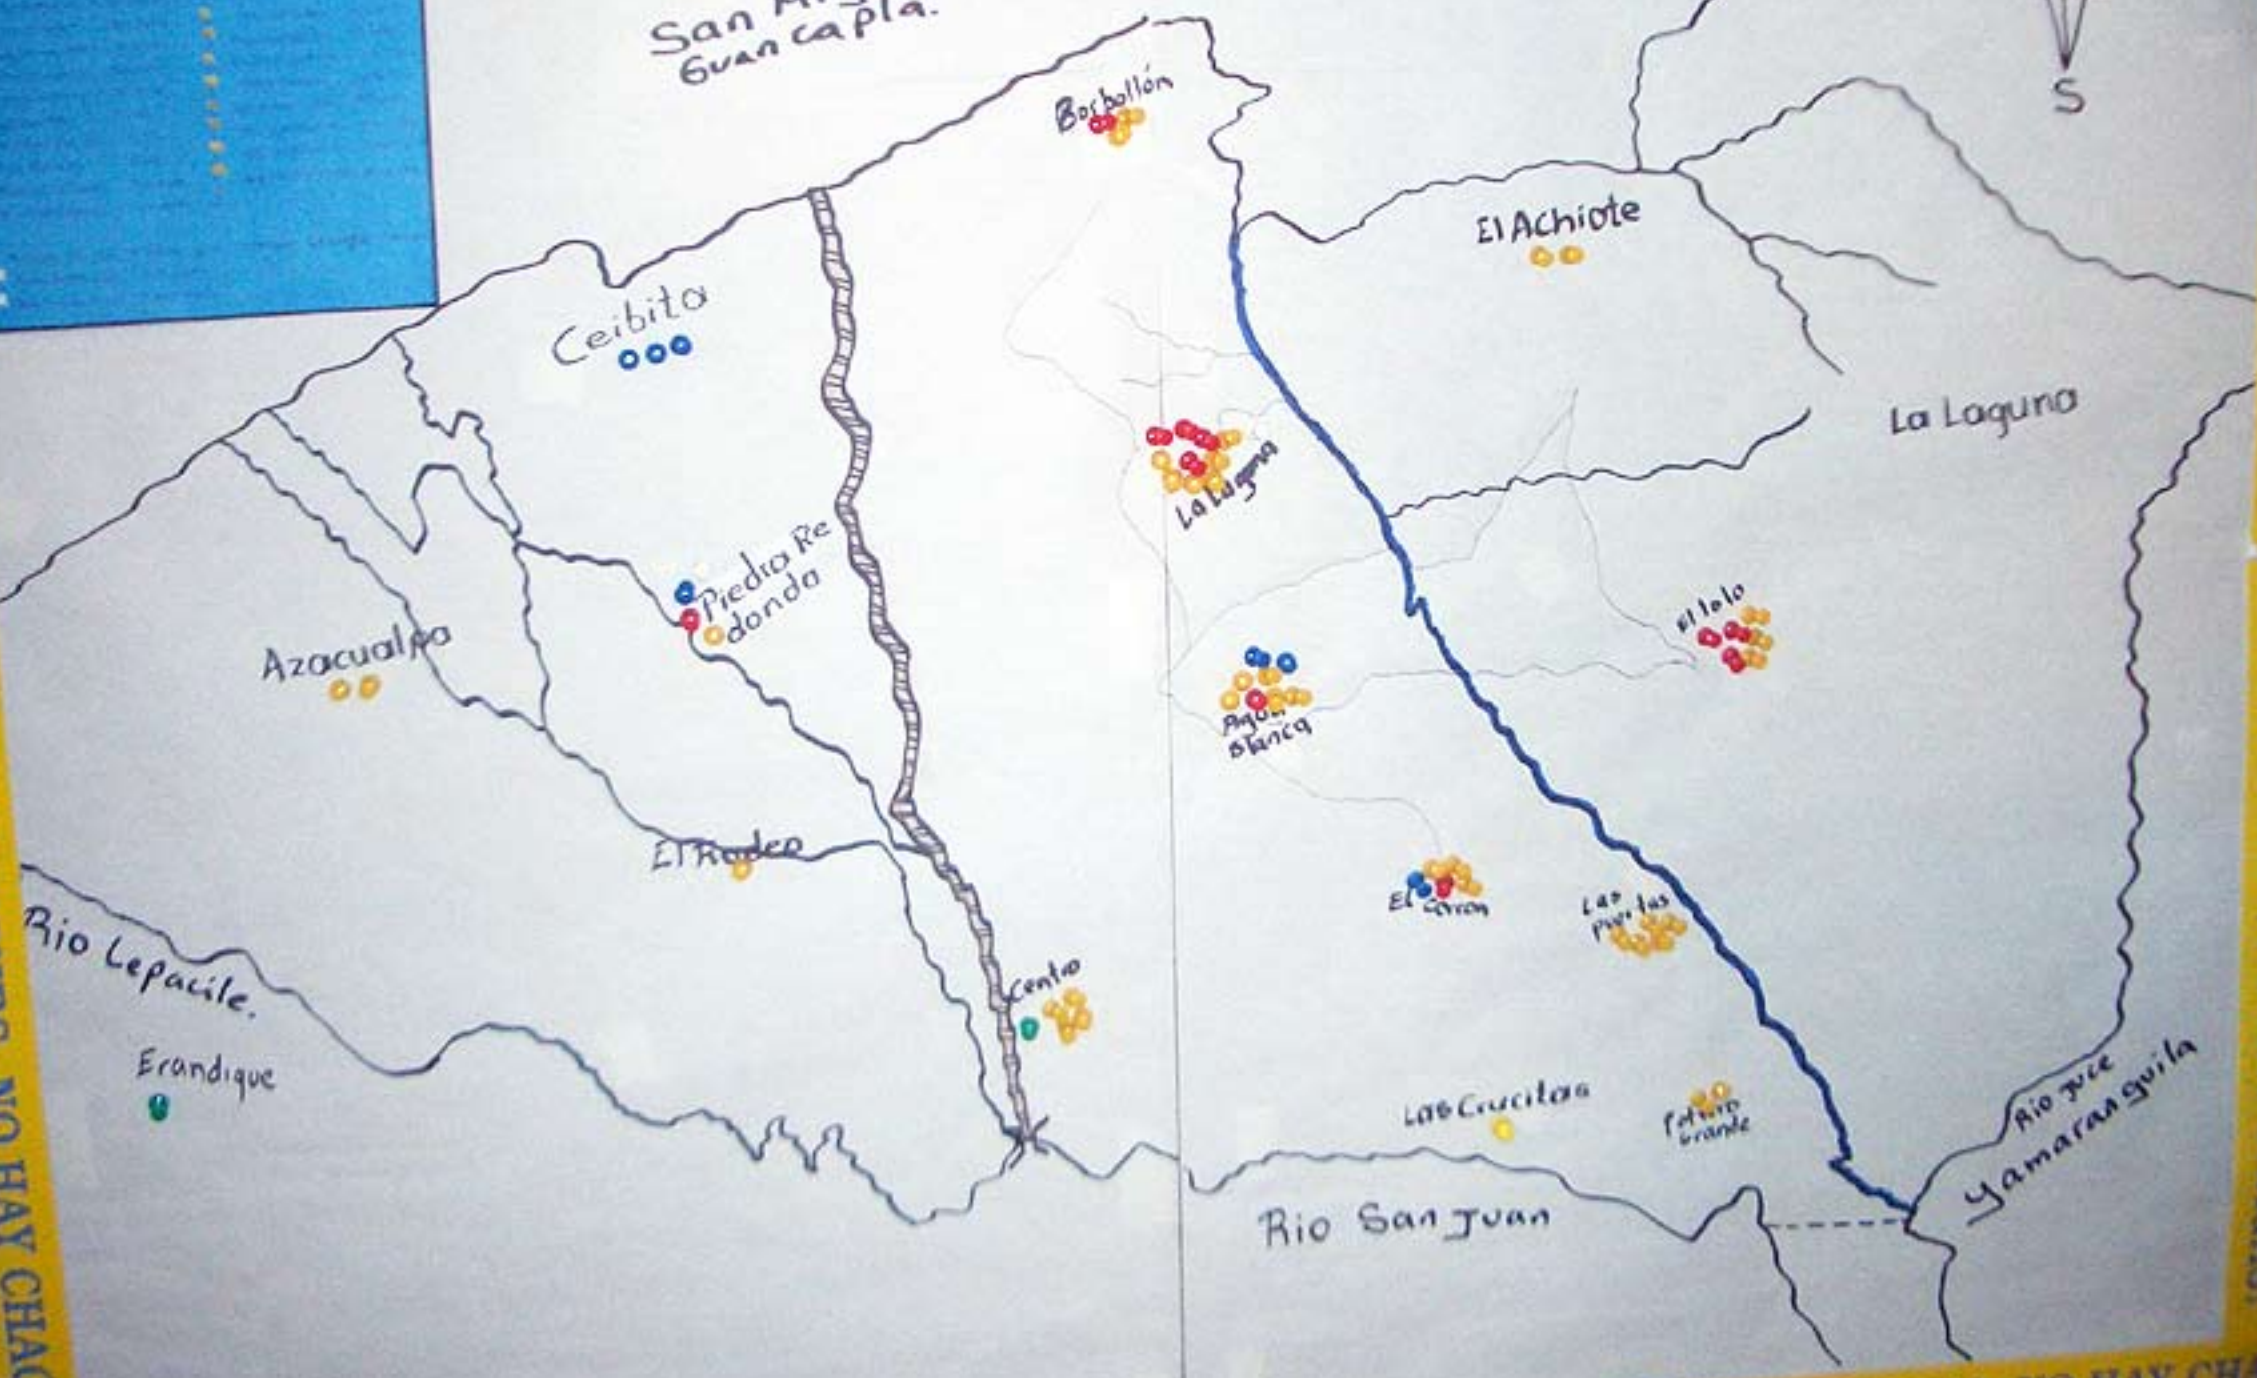 San
Guancapla.
Borbollón
S
El Achiote
Ceibita
La Laguna
La Laguna
Piedra Re
donda
El lolo
Azacualpa
Agua
Blanca
El Rodeo
El
Las
Rio Lepacile.
Centro
Erandique
Las Crucitas
Grande
Rio Juce
Yamaranguila
Rio San Juan
NO HAY CHA
NO HAY CHA